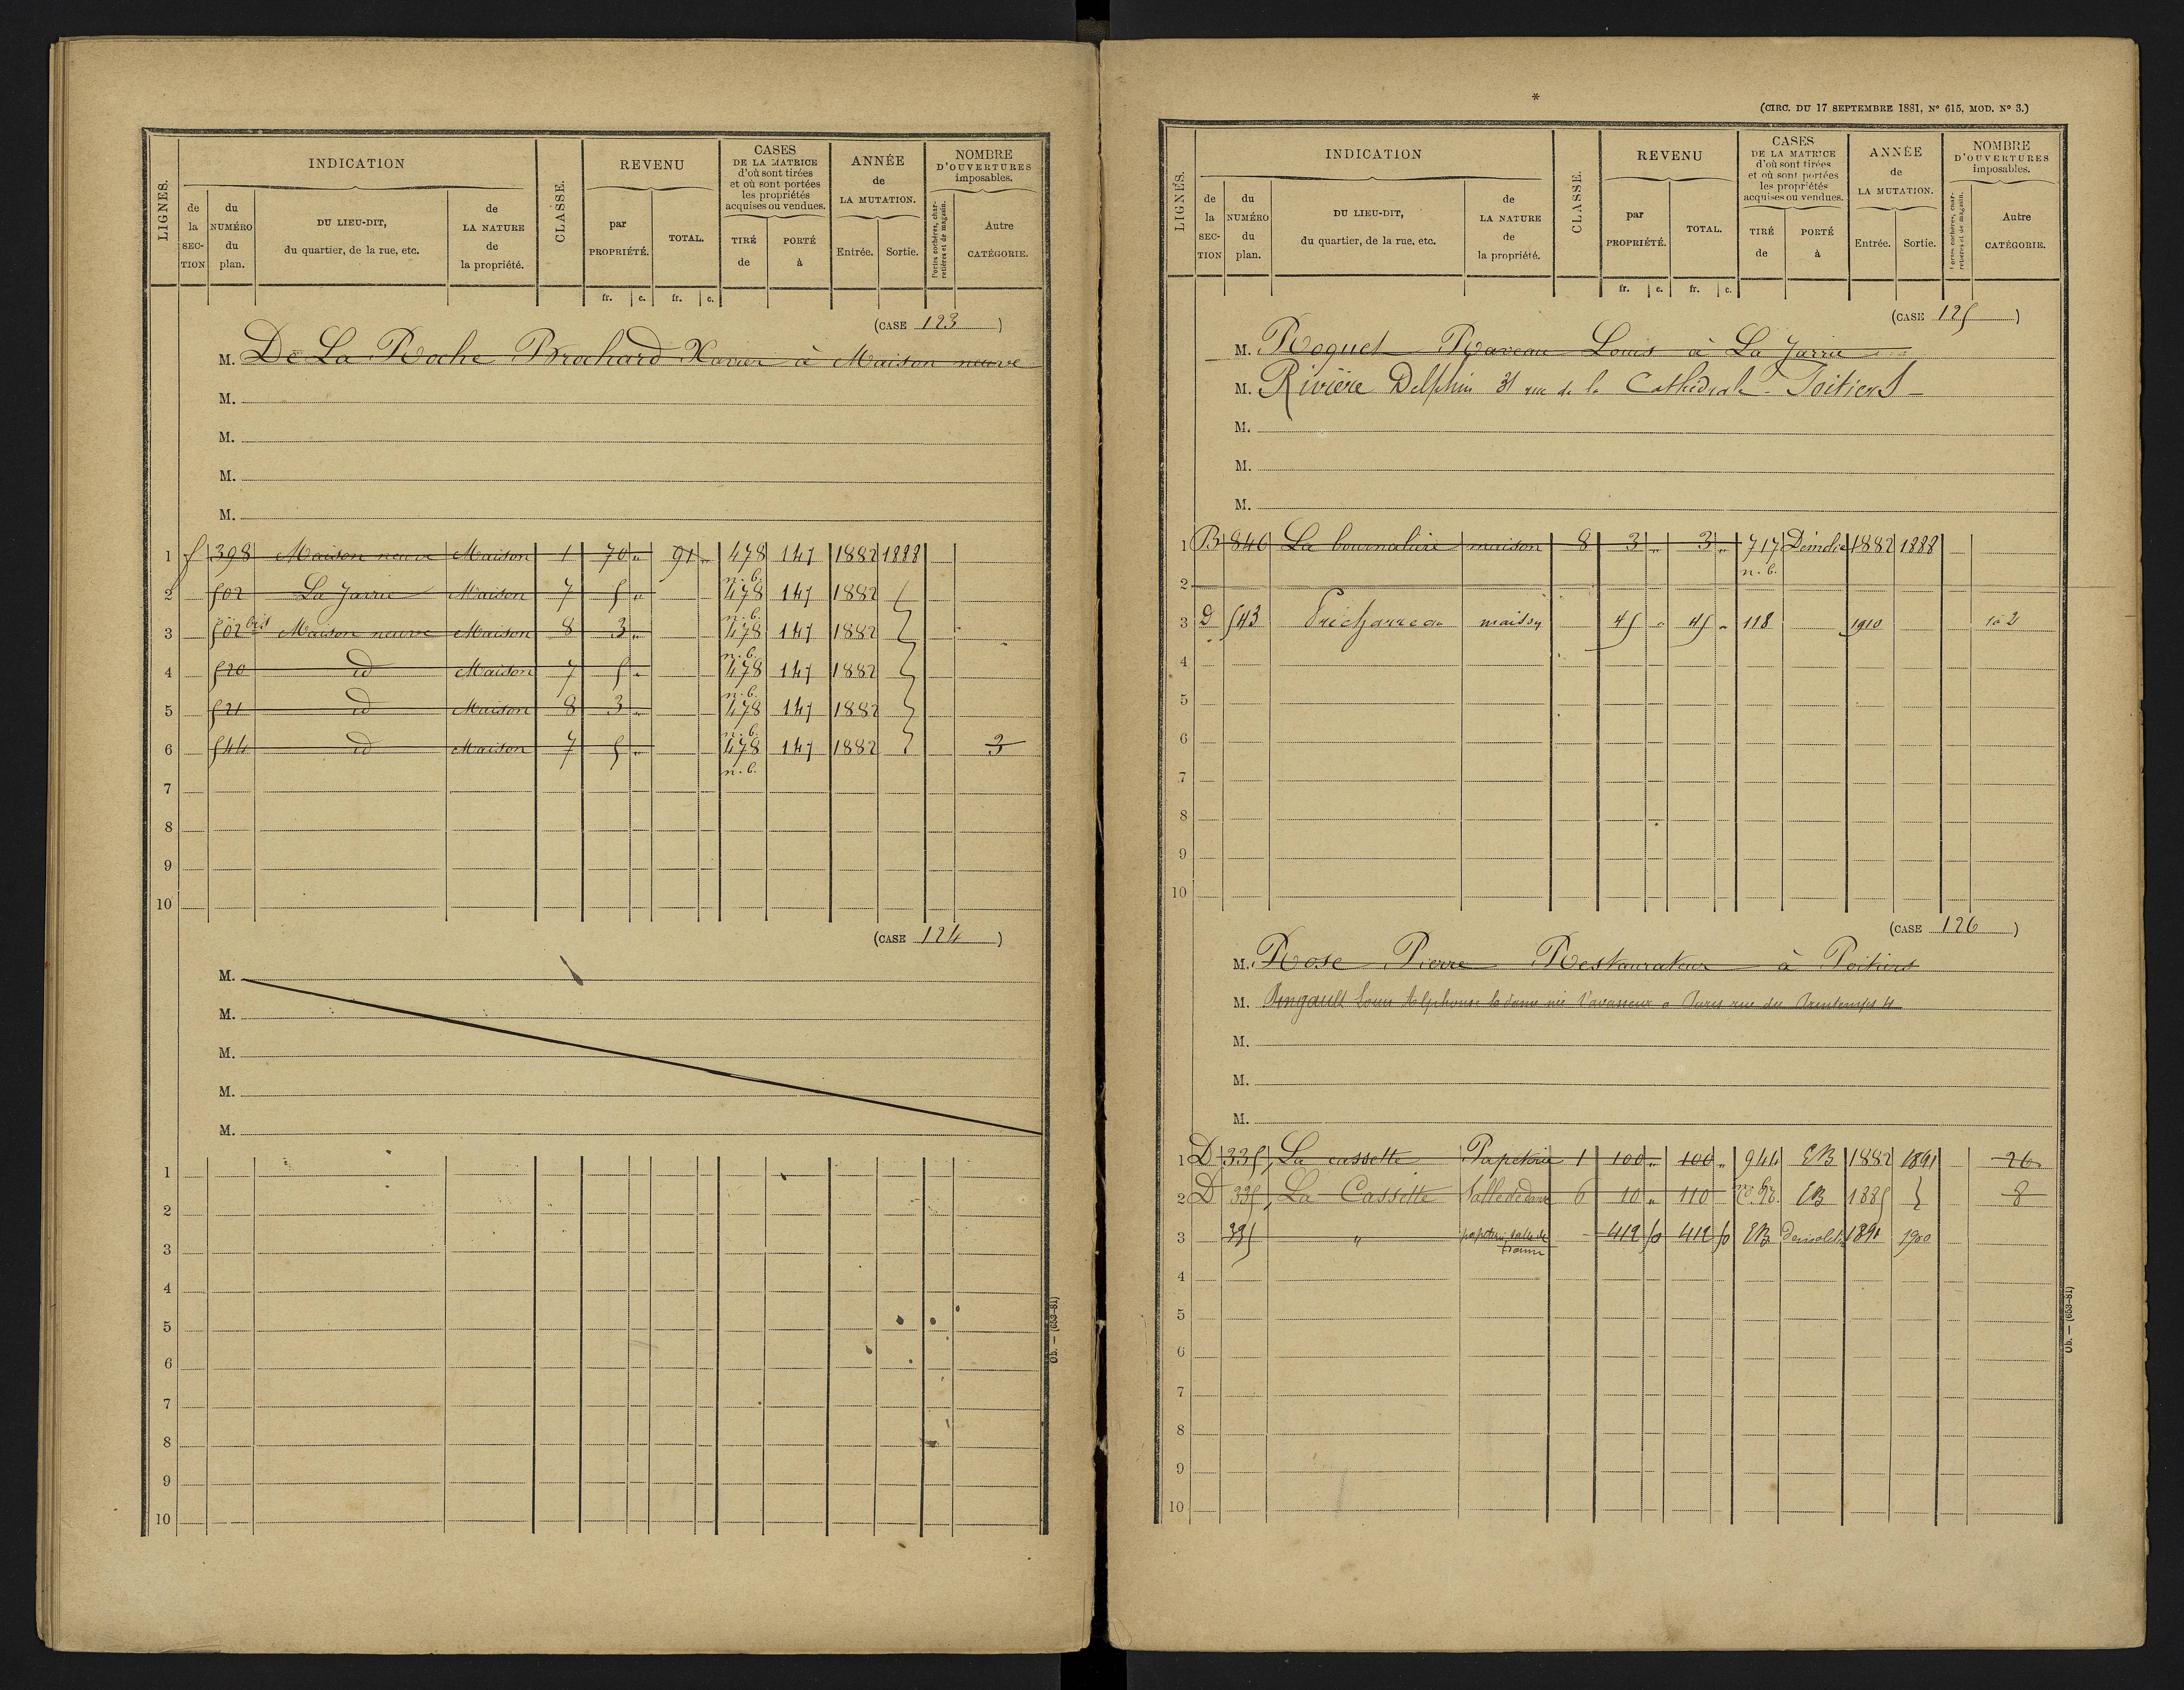 INDICATION
REVENU
CASES
DE LA MATRICE
d'où sont tirées
et où sont portées
les propriétés
acquises ou vendues.
ANNÉE
de
LA MUTATION.
NOMBRE
D'OUVERTURES
imposables.
LIGNES.
de la SECTION
du NUMÉRO du plan.
DU LIEU-DIT,
du quartier, de la rue, etc.
de LA NATURE de la propriété.
CLASSE.
par PROPRIÉTÉ.
TOTAL.
TIRÉ de
PORTÉ à
Entrée.
Sortie.
Portes cochères, charretières et de magasin.
Autre CATÉGORIE.
fr. c. fr. c.
(CASE 123)
M. De La Roche Brochard Xavier à Maison neuve
M.
M.
M.
M.
1 398 Maison neuve Maison 1 70 " 91 " 478 n.b. 147 1882 1888
2 502 La Jarrie Maison 7 5 " 478 n.b. 147 1882
3 502 bis Maison neuve Maison 8 3 " 478 n.b. 147 1882
4 520 id Maison 7 5 " 478 n.b. 147 1882
5 521 id Maison 8 3 " 478 n.b. 147 1882
6 544 id Maison 7 5 " 478 n.b. 147 1882 3
7
8
9
10
(CASE 124)
M.
M.
M.
M.
M.
1
2
3
4
5
6
7
8
9
10
Ob. — (653-81)
*
(CIRC. DU 17 SEPTEMBRE 1881, N° 615, MOD. N° 3.)
INDICATION
REVENU
CASES
DE LA MATRICE
d'où sont tirées
et où sont portées
les propriétés
acquises ou vendues.
ANNÉE
de
LA MUTATION.
NOMBRE
D'OUVERTURES
imposables.
LIGNES.
de la SECTION
du NUMÉRO du plan.
DU LIEU-DIT,
du quartier, de la rue, etc.
de LA NATURE de la propriété.
CLASSE.
par PROPRIÉTÉ.
TOTAL.
TIRÉ de
PORTÉ à
Entrée.
Sortie.
Portes cochères, charretières et de magasin.
Autre CATÉGORIE.
fr. c. fr. c.
(CASE 125)
M. Roquet Raveau Louis à La Jarrie
M. Rivière Delphin 31 rue de la Cathédrale - Poitiers -
M.
M.
M.
1 B 840 La maison 8 3 " 3 " 717 n.b. 1882 1888
2
3 D 543 maison 45 " 45 " 118 1910 1 à 2
4
5
6
7
8
9
10
(CASE 126)
M. Rose Pierre Restaurateur à Poitiers
M. Louis Alphonse née à Paris rue des Printemps 4
M.
M.
M.
1 D 335 La cassette Papeterie 1 100 " 100 " 944 EB 1882 1891 26
2 D 335 La Cassette Salle de danse 6 10 " 110 EB 1885 8
3 335 " papeterie salle de 412 50 412 50 EB 1891 1900
4
5
6
7
8
9
10
Ob. — (653-81)